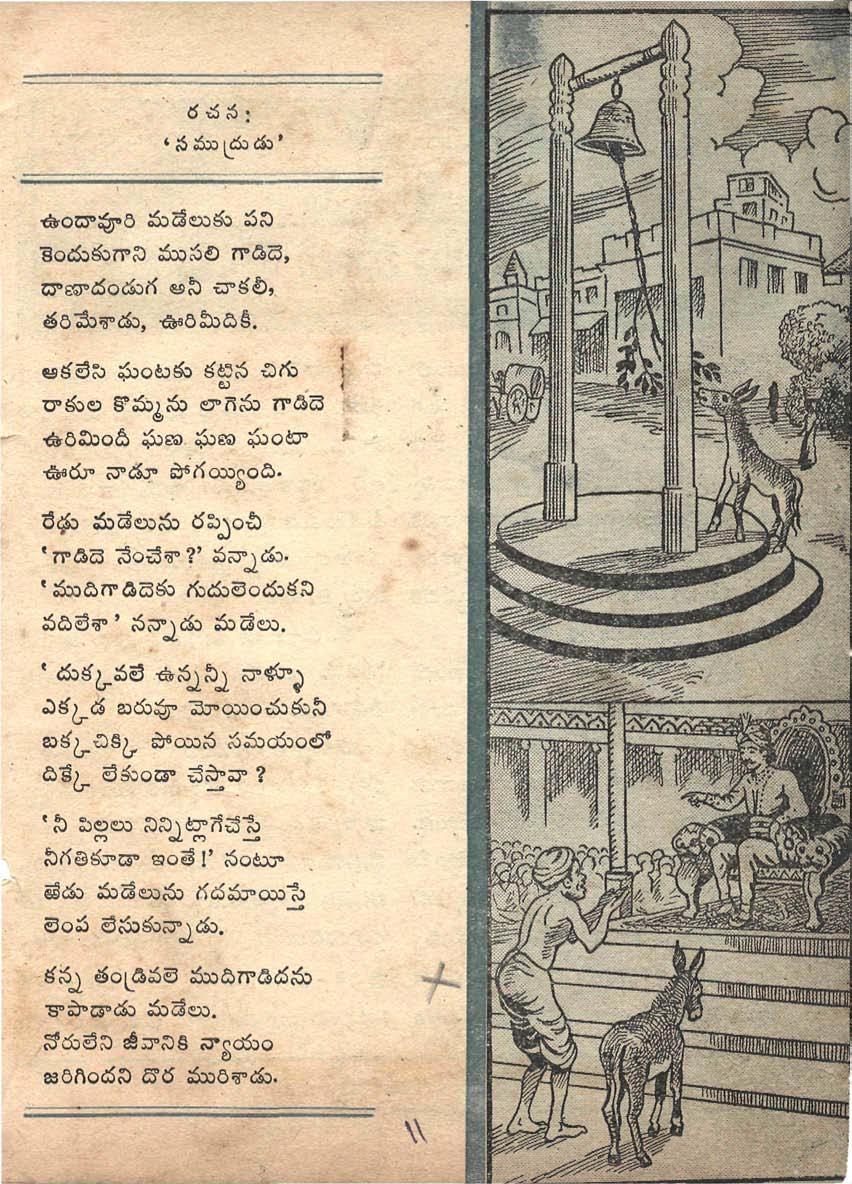 రచన:
'సముద్రుడు'
ఉందావూరి మడేలుకు పని
కెందుకుగాని ముసలి గాడిదె,
దాణాదండుగ అనీ చాకలీ,
తరిమేశాడు, ఊరిమీదికీ.
ఆకలేసి ఘంటకు కట్టిన చిగు
రాకుల కొమ్మను లాగెను గాడిదె
ఉరిమిందీ ఘణ ఘణ ఘంటా
ఊరూ నాడూ పోగయ్యింది.
రేడు మడేలును రప్పించీ
'గాడిదె నేంచేశా?' వన్నాడు.
'ముదిగాడిదెకు గుడులెందుకని
వదిలేశా' నన్నాడు మడేలు.
'దుక్కవలే ఉన్నన్నీ నాళ్ళూ
ఎక్కడ బరువూ మోయించుకునీ
బక్కచిక్కి పోయిన సమయంలో
దిక్కే లేకుండా చేస్తావా?
'నీ పిల్లలు నిన్నిట్లాగేచేస్తే
నీగతికూడా ఇంతే!' నంటూ
ఱేడు మడేలును గదమాయిస్తే
లెంప లేసుకున్నాడు.
కన్న తండ్రివలె ముదిగాడిదను
కాపాడాడు మడేలు.
నోరులేని జీవానికి న్యాయం
జరిగిందని దొర మురిశాడు.
11